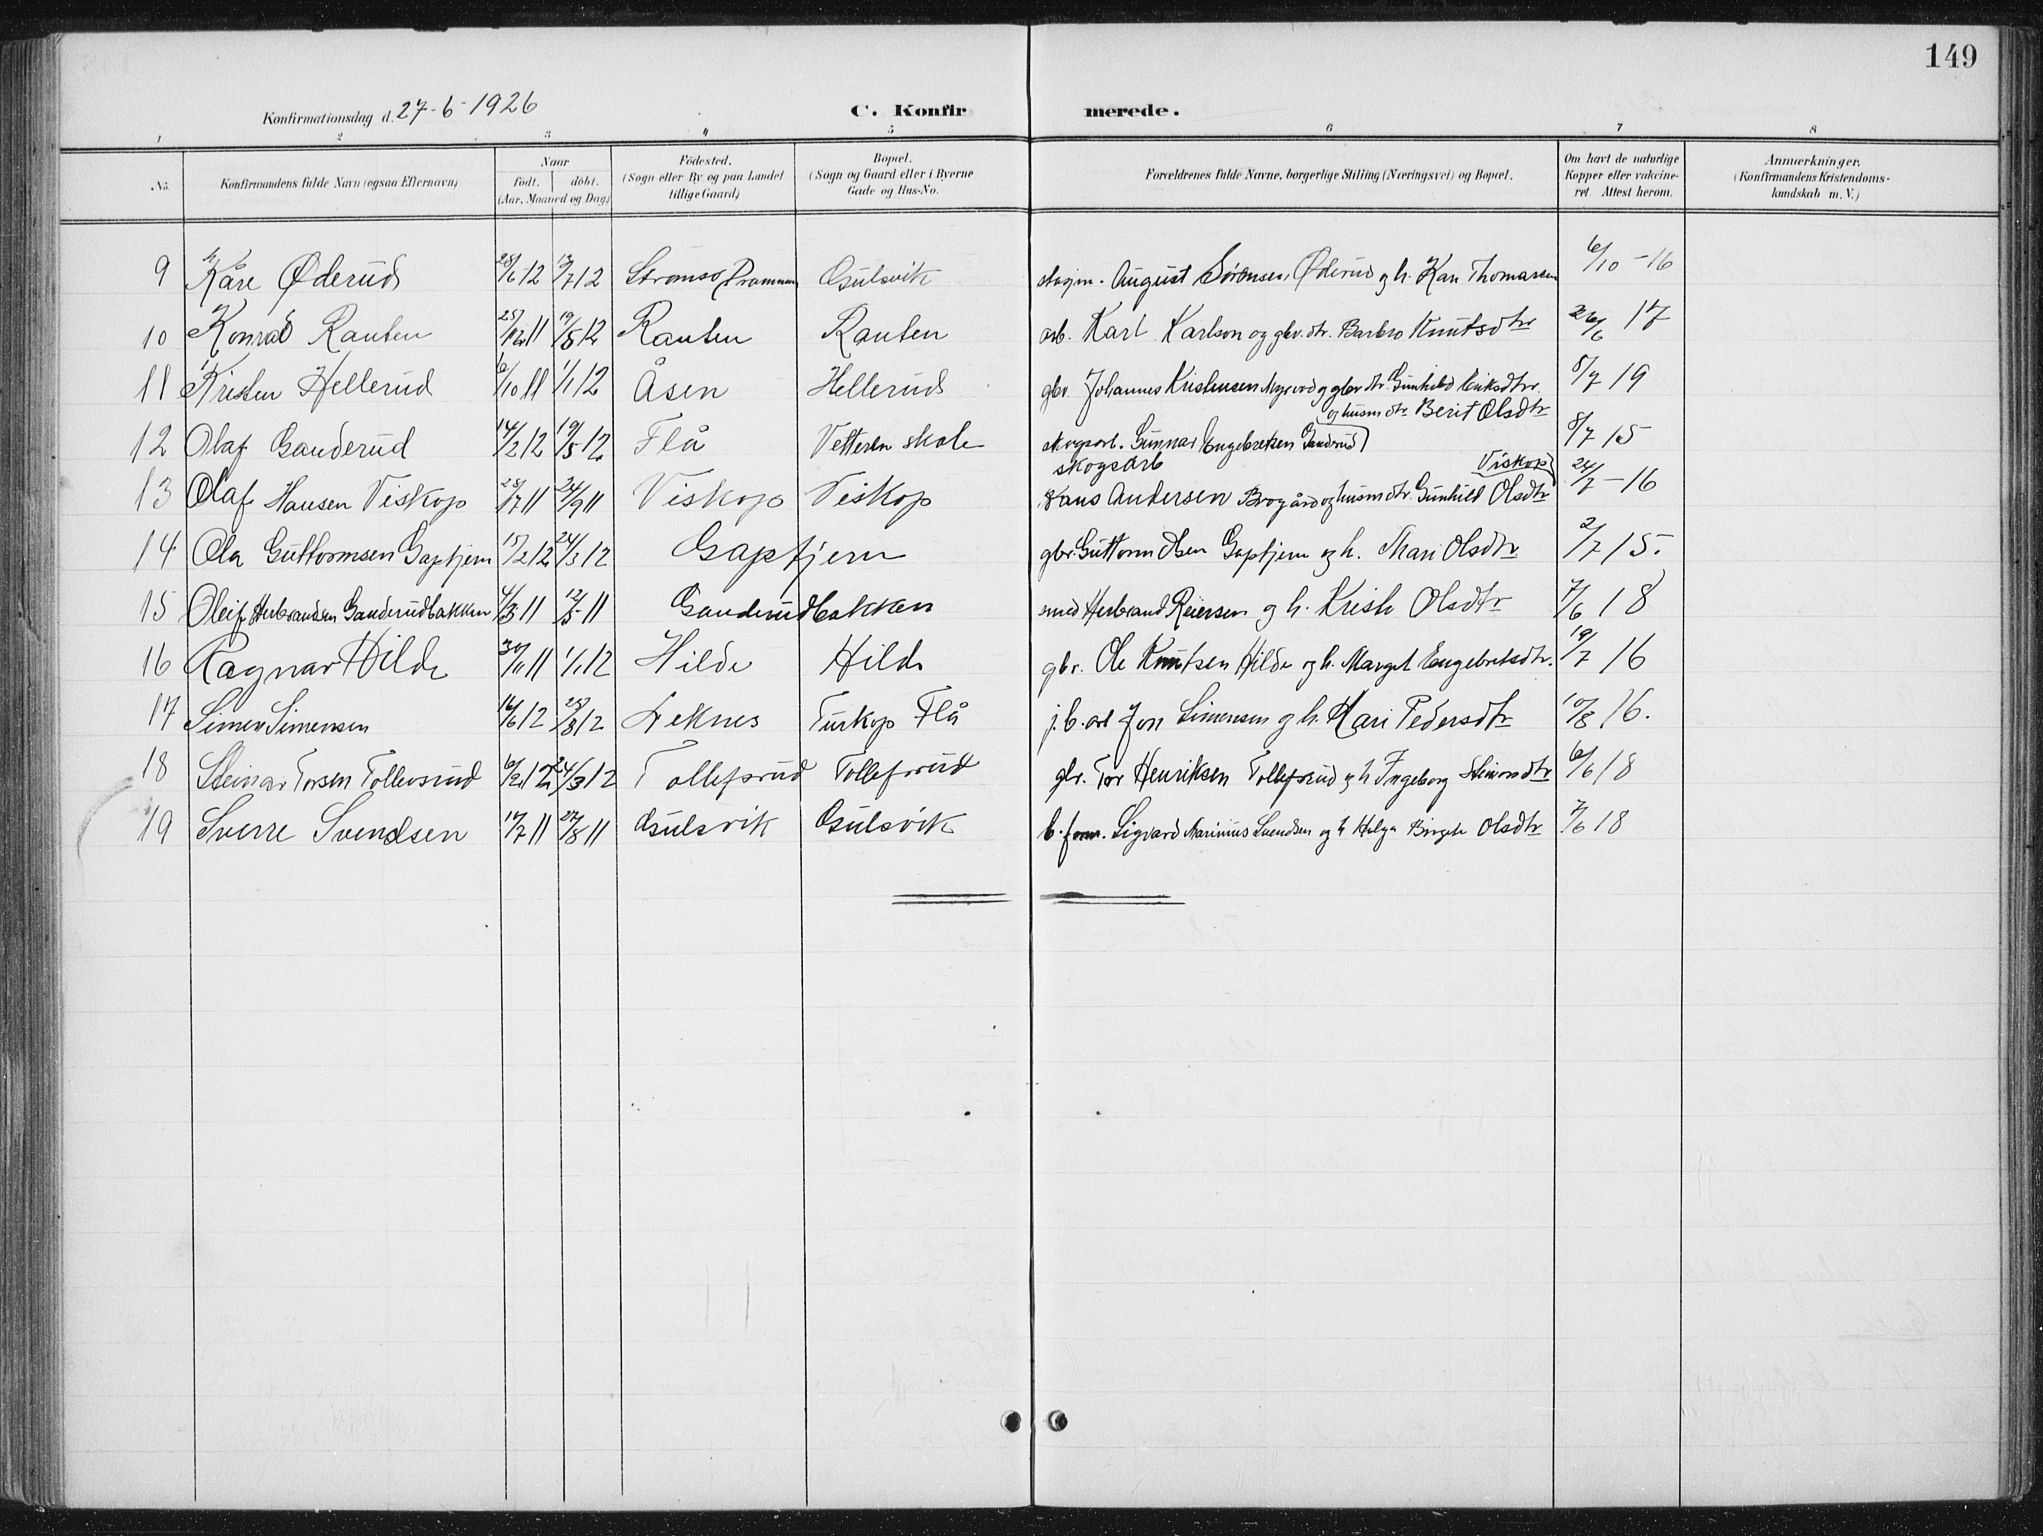 149
Konfirmationsdag d. 27-6-1926
C. Konfirmerede.
1 2 3 4 5 6 7 8
No.
Konfirmandens fulde Navn (ogsaa Efternavn)
Naar
födt. döbt.
(Aar, Maaned og Dag)
Födested.
(Sogn eller By og paa Landet
tillige Gaard)
Bopæl.
(Sogn og Gaard eller i Byerne
Gade og Hus-No.
Forældrenes fulde Navne, borgerlige Stilling (Næringsvei) og Bopæl.
Om havt de naturlige
Kopper eller vakcine-
ret. Attest herom.
Anmærkninger.
(Konfirmandens Kristendoms-
kundskab m. V.)
9 Kåre Øderud 28/6 12 13/7 12 Strømsø, Drammen Gulsvik August Sørensen Øderud og h. Kari Thomassen 6/10-16
10 Konrad Rauten 25/12 11 19/5 12 Rauten Rauten arb. Karl Karlson og gbr. dtr. Barbro Knutsdtr 26/6 17
11 Kristen Hellerud 6/10 11 1/1 12 Åsen Hellerud gbr. Johannes Kristensen og gbr dtr. Gunhild Eriksdtr. 8/7 19
og husm dtr. Berit Olsdtr
12 Olaf Ganderud 14/2 12 19/5 12 Flå Vetteren skole skogsarb. Gunnar Engebretsen Ganderud 8/7 15
skogsarb Viskop
13 Olaf Hansen Viskop 28/7 11 24/9 11 Viskop Viskop Hans Andersen Brogård og husm dtr. Gunhild Olsdtr 24/7-16
14 Ola Guttormsen Gaptjern 15/2 12 24/3 12 Gaptjern gbr. Guttorm Olsen Gaptjern og h. Mari Olsdtr 2/7 15.
15 Oleif Herbrandsen Ganderudbakken 4/3 11 12/5 11 Ganderudbakken smed Herbrand Reiersen og h. Kristi Olsdtr 7/6 18
16 Ragnar Hilde 30/11 11 1/1 12 Hilde Hilde gbr. Ole Knutsen Hilde og h. Margit Engebretsdtr. 19/7 16
17 Simen Simensen 16/6 12 25/8 12 Veknes Turkop Flå j.b. arb Jon Simensen og h. Kari Pedersdtr 10/8 16.
18 Steinar Torsen Tollevsrud 6/2 12 24/3 12 Tollefsrud Tollefsrud gbr. Tor Henriksen Tollefsrud og h Ingeborg Steinarsdtr 6/6 18
19 Sverre Svendsen 17/7 11 27/8 11 Gulsvik Gulsvik b. form. Sigvard Marinius Svendsen og h Helga Birgitte Olsdtr 7/6 18